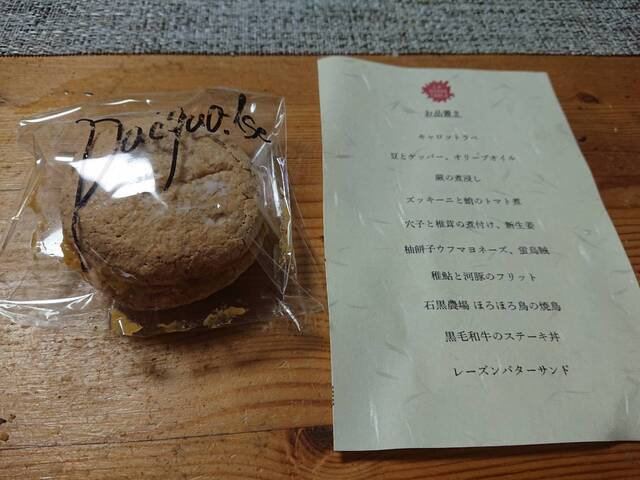 Dacquoise
お品書き
キャロットラペ
豆とゲッパー、オリーブオイル
蕨の煮浸し
ズッキーニと鮪のトマト煮
穴子と椎茸の煮付け、新生姜
柚餅子ウフマヨネーズ、蛍烏賊
稚鮎と河豚のフリット
石黒農場 ほろほろ鳥の焼鳥
黒毛和牛のステーキ丼
レーズンバターサンド